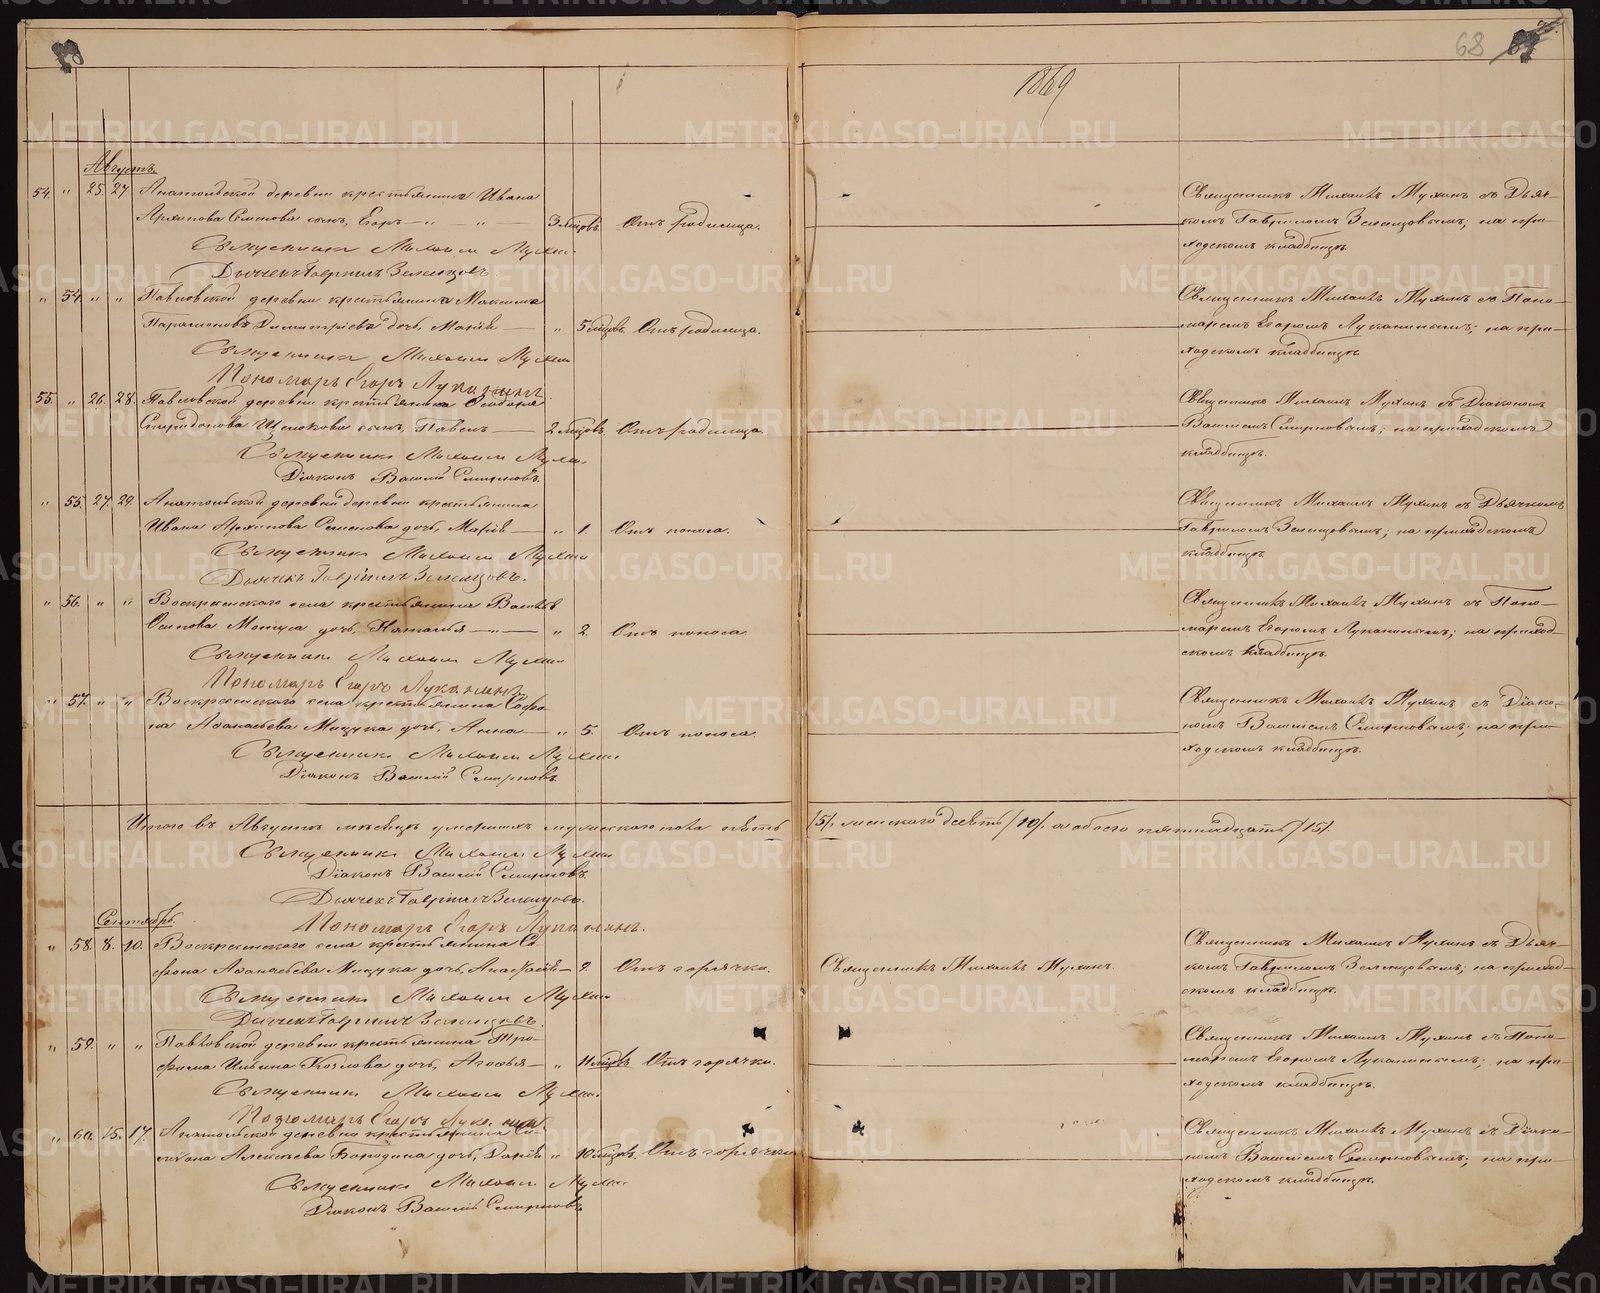 68
1869
Августъ.
54. " 25. 27. Анатольской деревни крестьянина Ивана
Архипова Семенова сынъ, Егоръ — " — " 3 мѣсцовъ. Отъ родимца.
Священникъ Михаилъ Мухинъ
Дьячекъ Гавріилъ Зеленцовъ.
Священникъ Михаилъ Мухинъ съ Дьяч-
комъ Гавріиломъ Зеленцовымъ; на при-
ходскомъ кладбищѣ.
" 54. " " Павловской деревни крестьянина Максима
Парамонова Димитріева дочь, Марія — " 5 мѣсцовъ. Отъ родимца.
Священникъ Михаилъ Мухинъ
Пономарь Егоръ Луканинъ
Священникъ Михаилъ Мухинъ съ Поно-
маремъ Егоромъ Луканинымъ; на при-
ходскомъ кладбищѣ.
55. " 26. 28. Павловской деревни крестьянина
Спиридонова Щелокова сынъ, Павелъ — 2 мѣсцовъ. Отъ родимца.
Священникъ Михаилъ Мухинъ
Діаконъ Василій Смирновъ.
Священникъ Михаилъ Мухинъ съ Діакономъ
Василіемъ Смирновымъ; на приходскомъ
кладбищѣ.
" 55. 27. 29. Анатольской деревни деревни крестьянина
Ивана Архипова Семенова дочь, Марія — " 1. Отъ поноса.
Священникъ Михаилъ Мухинъ
Дьячекъ Гавріилъ Зеленцовъ.
Священникъ Михаилъ Мухинъ съ Дьячкомъ
Гавріиломъ Зеленцовымъ; на приходскомъ
кладбищѣ.
" 56. " " Воскресенского села крестьянина Василья
Осипова дочь, Наталья — " — " 2. Отъ поноса.
Священникъ Михаилъ Мухинъ
Пономарь Егоръ Луканинъ
Священникъ Михаилъ Мухинъ съ Поно-
маремъ Егоромъ Луканинымъ; на приход-
скомъ кладбищѣ.
" 57. " " Воскресенского села крестьянина Софро-
на Аѳанасьева Мицука дочь, Анна — " 5. Отъ поноса.
Священникъ Михаилъ Мухинъ
Діаконъ Василій Смирновъ.
Священникъ Михаилъ Мухинъ съ Діако-
номъ Василіемъ Смирновымъ; на при-
ходскомъ кладбищѣ.
Итого въ Августѣ мѣсяцѣ умершихъ мужескаго пола пять /5/. женского десять /10/. а обоего пятнадцать /15/.
Священникъ Михаилъ Мухинъ
Діаконъ Василій Смирновъ.
Дьячекъ Гавріилъ Зеленцовъ.
Пономарь Егоръ Луканинъ.
Сентябрь.
" 58. 8. 10. Воскресенского села крестьянина Со-
фрона Аѳанасьева Мицука дочь, — 9. Отъ горячки. Священникъ Михаилъ Мухинъ.
Священникъ Михаилъ Мухинъ
Дьячекъ Гавріилъ Зеленцовъ.
Священникъ Михаилъ Мухинъ съ Дьяч-
комъ Гавріиломъ Зеленцовымъ; на приход-
скомъ кладбищѣ.
" 59. " " Павловской деревни крестьянина Тро-
фима Ильина Козлова дочь, Агаѳья — " 11 мѣсцовъ. Отъ горячки.
Священникъ Михаилъ Мухинъ
Пономарь Егоръ Луканинъ
Священникъ Михаилъ Мухинъ съ Поно-
маремъ Егоромъ Луканинымъ; на при-
ходскомъ кладбищѣ.
" 60. 15. 17. Анатольской деревни крестьянина
Алексѣева Бородина дочь, Дарія " 10 мѣсцовъ. Отъ горячки
Священникъ Михаилъ Мухинъ
Діаконъ Василій Смирновъ
Священникъ Михаилъ Мухинъ съ Діако-
номъ Василіемъ Смирновымъ; на при-
ходскомъ кладбищѣ.
METRIKI.GASO-URAL.RU